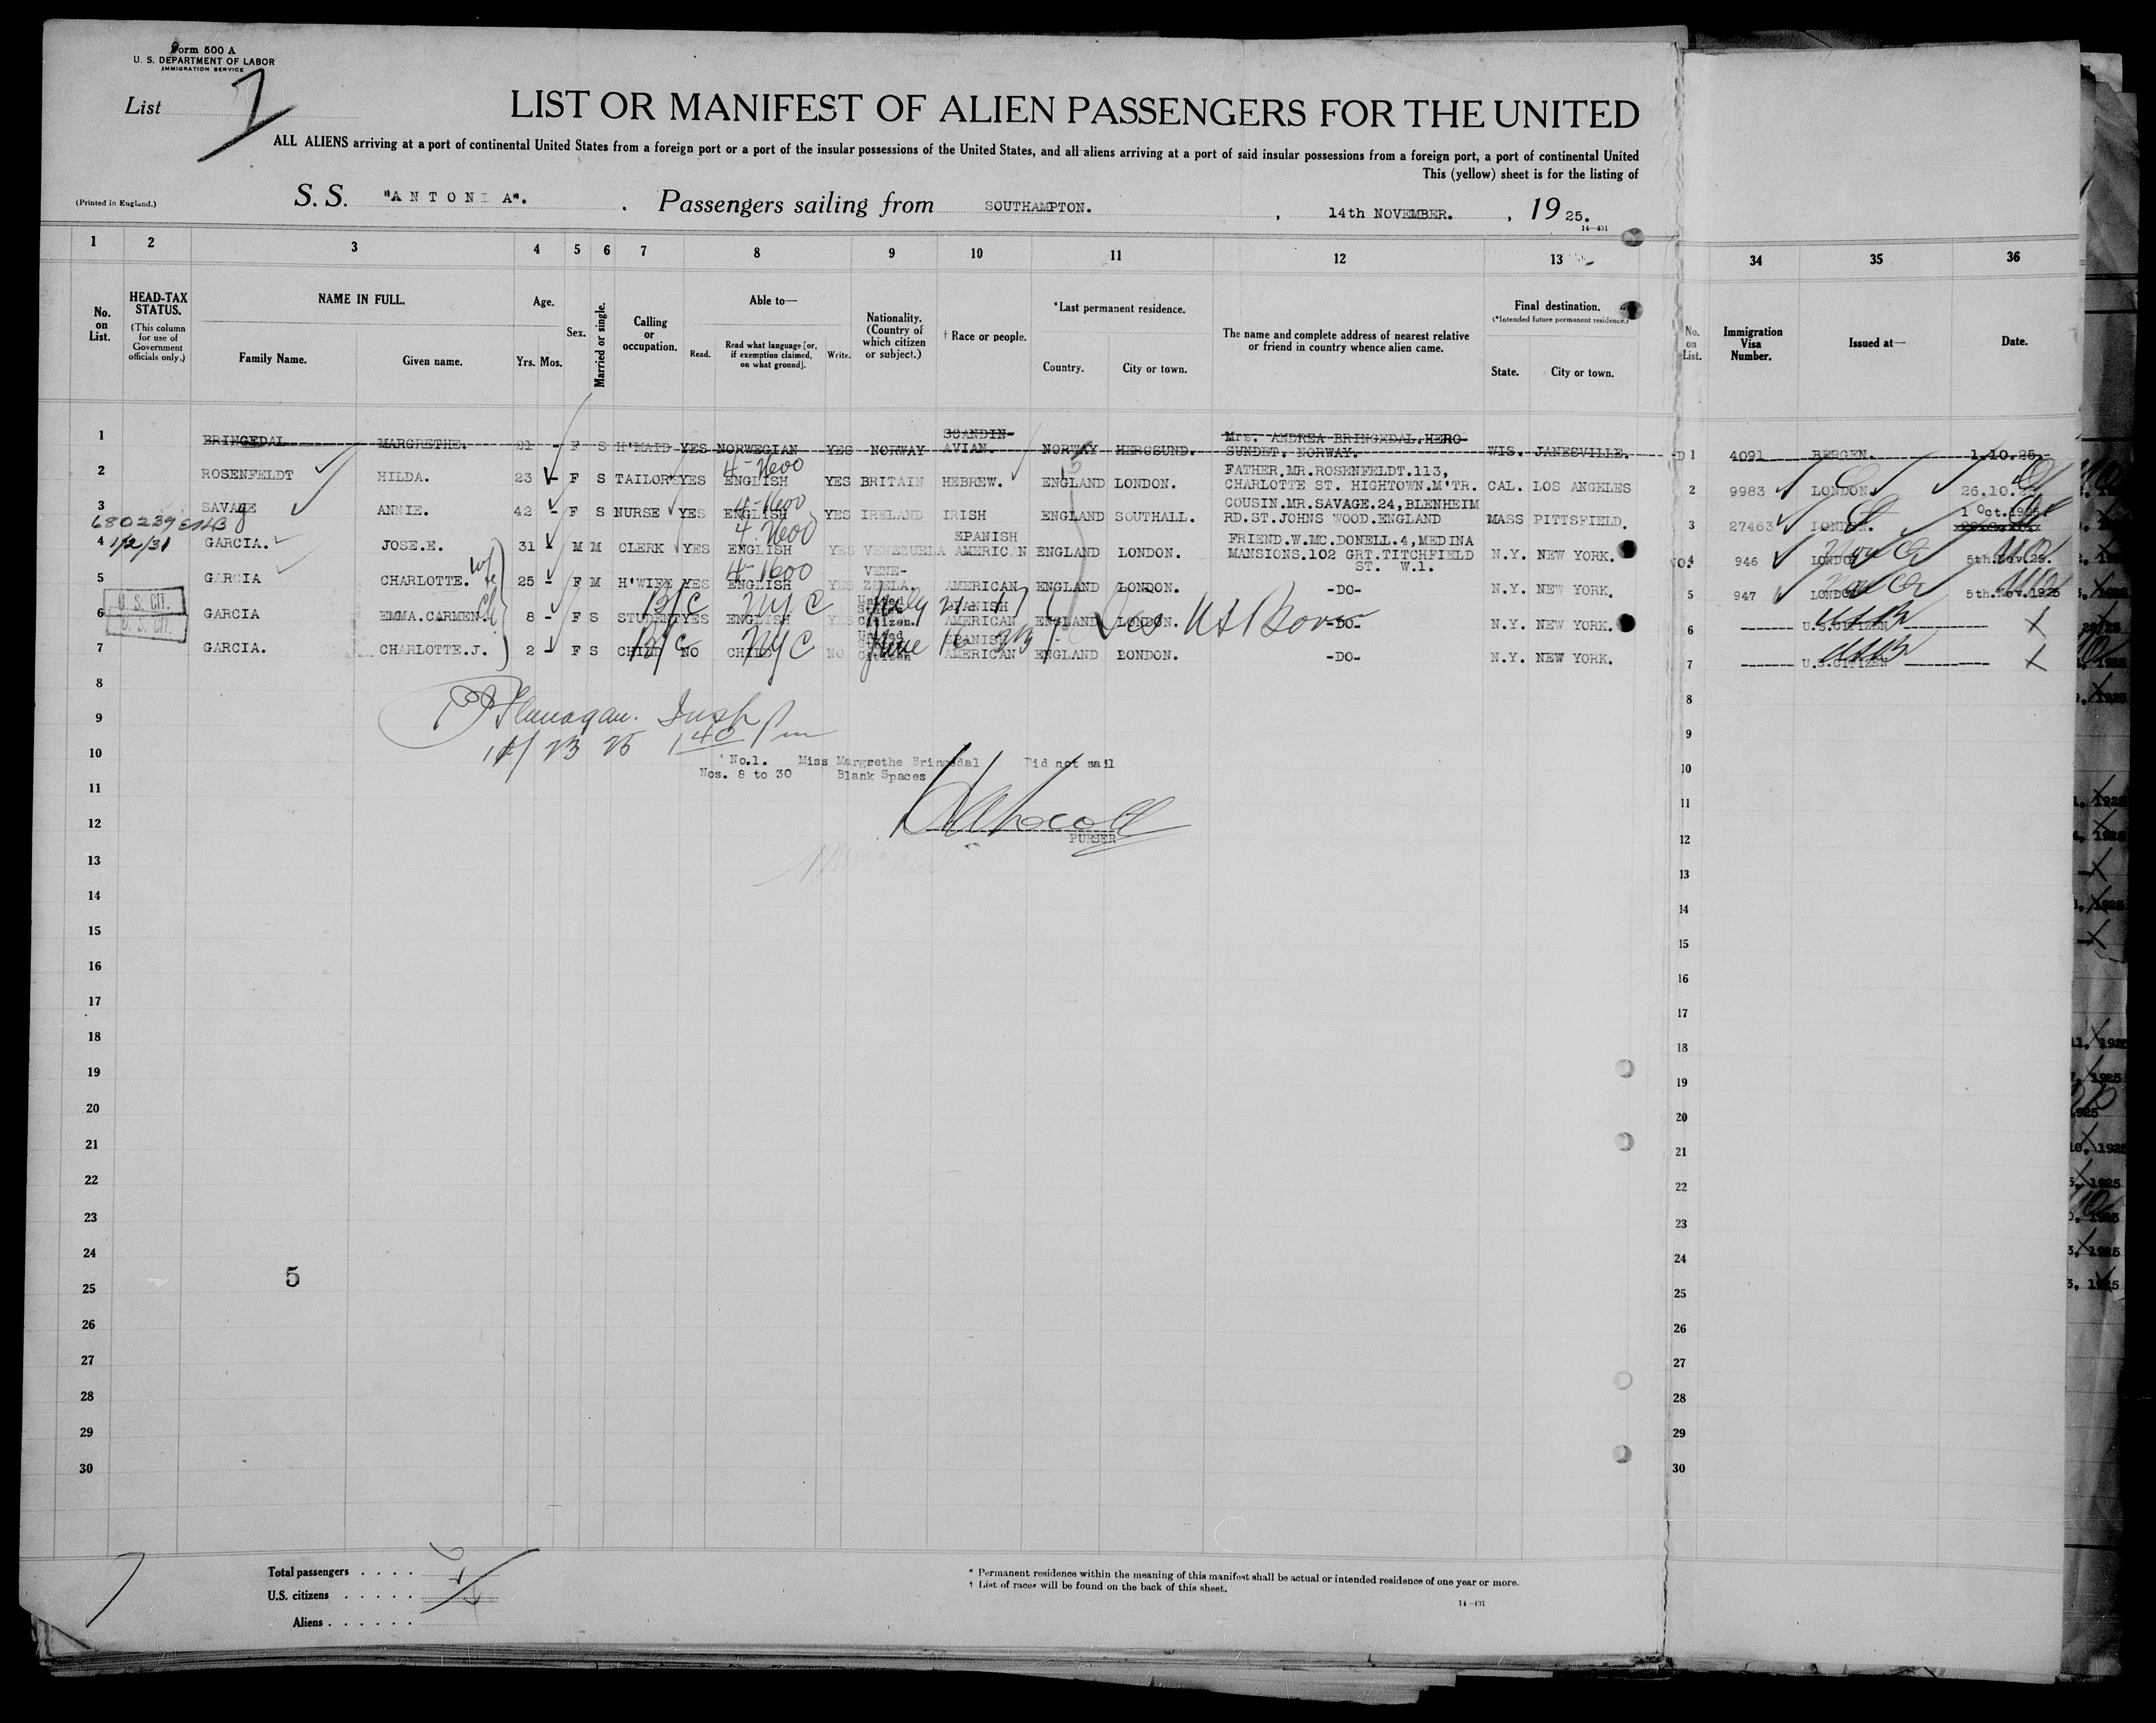 Form 500 A
U. S. DEPARTMENT OF LABOR
IMMIGRATION SERVICE
List 7
LIST OR MANIFEST OF ALIEN PASSENGERS FOR THE UNITED
ALL ALIENS arriving at a port of continental United States from a foreign port or a port of the insular possessions of the United States, and all aliens arriving at a port of said insular possessions from a foreign port, a port of continental United
This (yellow) sheet is for the listing of
(Printed in England.)
S. S. "ANTONIA". Passengers sailing from SOUTHAMPTON. , 14th NOVEMBER. , 19 25.
14—431
1 2 3 4 5 6 7 8 9 10 11 12 13 34 35 36
No. on List.
HEAD-TAX STATUS.
(This column for use of Government officials only.)
NAME IN FULL.
Family Name. Given name.
Age.
Yrs. Mos.
Sex.
Married or single.
Calling or occupation.
Able to—
Read. Read what language [or, if exemption claimed, on what ground]. Write.
Nationality. (Country of which citizen or subject.)
† Race or people.
*Last permanent residence.
Country. City or town.
The name and complete address of nearest relative or friend in country whence alien came.
Final destination.
(*Intended future permanent residence.)
State. City or town.
No. on List.
Immigration Visa Number.
Issued at—
Date.
1 BRINGEDAL MARGRETHE. 21 - F S H'MAID YES NORWEGIAN YES NORWAY SCANDIN-AVIAN. NORWAY HEROSUND. Mrs. ANDREA BRINGEDAL.HERO-SUNDET. NORWAY. WIS. JANESVILLE. 1 4091 BERGEN. 1.10.25.
2 ROSENFELDT HILDA. 23 - F S TAILOR'S YES ENGLISH YES BRITAIN HEBREW. ENGLAND LONDON. FATHER.MR.ROSENFELDT.113, CHARLOTTE ST. HIGHTOWN.M'TR. CAL. LOS ANGELES 2 9983 LONDON. 26.10.
3 SAVAGE ANNIE. 42 - F S NURSE YES ENGLISH YES IRELAND IRISH ENGLAND SOUTHALL. COUSIN.MR.SAVAGE.24,BLENHEIM RD.ST.JOHNS WOOD.ENGLAND MASS PITTSFIELD. 3 27463 LONDON. 1 Oct.1925.
680239
1/2/31
4 GARCIA. JOSE.E. 31 - M M CLERK YES ENGLISH YES VENEZUELA SPANISH AMERICAN ENGLAND LONDON. FRIEND.W.MC.DONELL.4,MEDINA MANSIONS.102 GRT.TITCHFIELD ST. W.1. N.Y. NEW YORK. 4 946 LONDON 5th.Nov.25.
5 GARCIA CHARLOTTE. wife 25 - F M H'WIFE YES ENGLISH YES VENE-ZUELA. AMERICAN ENGLAND LONDON. -DO- N.Y. NEW YORK. 5 947 LONDON 5th.Nov.1925
U. S. CIT.
6 GARCIA EMMA.CARMEN. 8 - F S STUDENT YES ENGLISH YES United States Citizen. SPANISH AMERICAN ENGLAND LONDON. -DO- N.Y. NEW YORK. 6 U.S.CITIZEN
B/C NYC July 21 17
U. S. CIT.
7 GARCIA. CHARLOTTE.J. 2 - F S CHILD NO CHILD NO United States Citizen SPANISH AMERICAN ENGLAND LONDON. -DO- N.Y. NEW YORK. 7 U.S.CITIZEN
B/C NYC June
8 8
9 9
Flanagan. Insp
10 10
11/23 25 1 40 pm
No.1. Miss Margrethe Bringedal Did not sail
Nos. 8 to 30 Blank Spaces
11 11
12 12
PURSER
13 13
14 14
15 15
16 16
17 17
18 18
19 19
20 20
21 21
22 22
23 23
24 24
5
25 25
26 26
27 27
28 28
29 29
30 30
Total passengers . . . .
U.S. citizens . . . . .
Aliens . . . . . .
* Permanent residence within the meaning of this manifest shall be actual or intended residence of one year or more.
† List of races will be found on the back of this sheet.
14—431